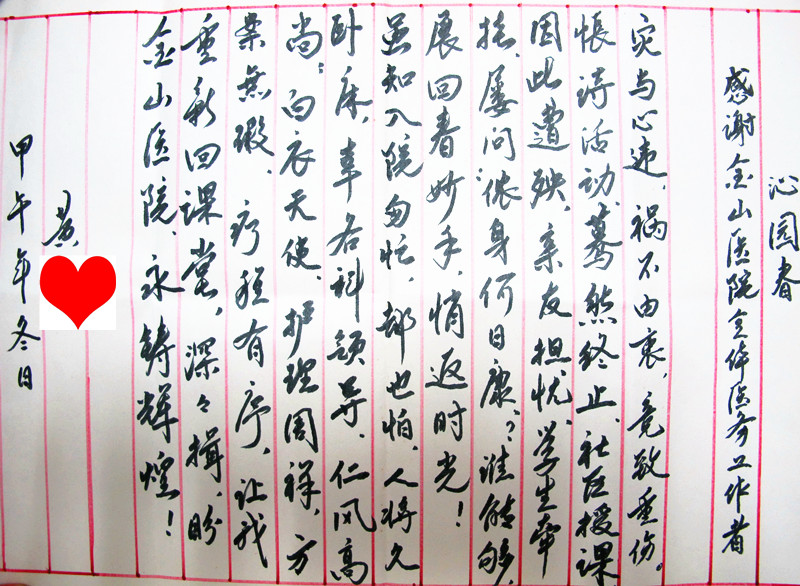 沁园春
感谢金山医院全体医务工作者
灾与心违，祸不由衷，竟致重伤。
怅诗活动，蓦然终止，社区授课
因此遭殃，亲友担忧，学生牵
挂，屡问：侬身何日康？谁能够，
展回春妙手，悄返时光！
虽知入院匆忙，都也怕，人将久
卧床，幸各科领导，仁风高
尚；白衣天使，护理周祥，方
案無瑕，疗程有序，让我
重新回课堂，深々揖，盼
金山医院，永铸辉煌！
黄
甲午年冬日